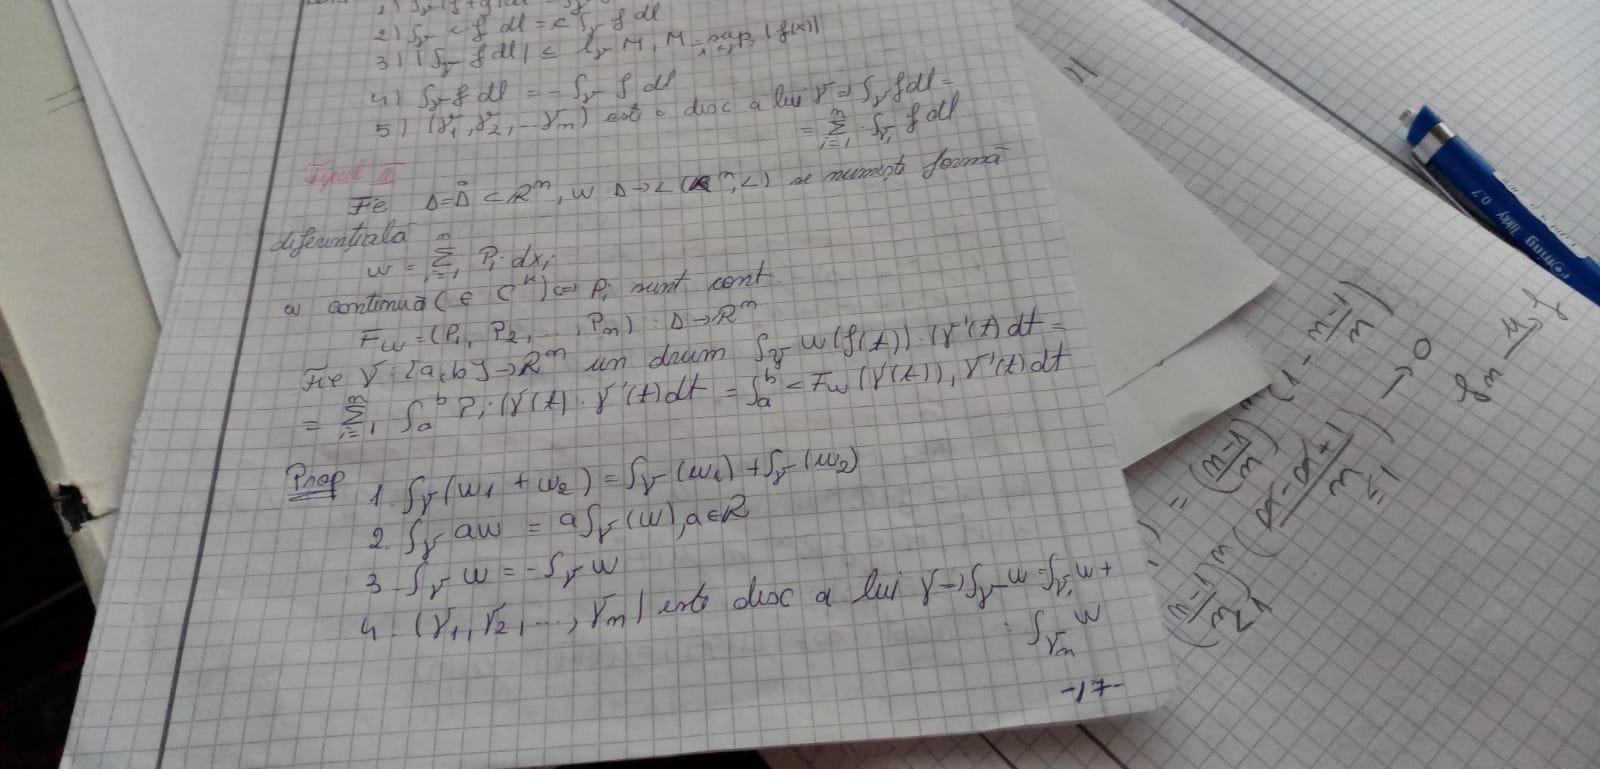 2) ∫γ c·f dl = c ∫γ f dl
3) |∫γ f dl| ≤ lγ M, M = sup |f(x)|
4) ∫γ- f dl = - ∫γ f dl
5) (γ1, γ2, ... γm) este o desc a lui γ => ∫γ f dl =
= Σ i=1 m ∫γi f dl
Tipul II
Fie D=D̊ ⊂ R^m, w: D→L(R^m, L) se numește formă
diferențială
w = Σ i=1 m Pi·dxi
w continuă (∈ C^k) <=> Pi sunt cont.
Fw = (P1, P2, ..., Pm) : D→R^m
Fie γ: [a,b]→R^m un drum ∫γ w(f(t))·(γ'(t)dt =
= Σ i=1 m ∫a b Pi·(γ(t)·γ'(t)dt = ∫a b <Fw(γ(t)), γ'(t)dt
Prop
1. ∫γ(w1 + w2) = ∫γ(w1) + ∫γ(w2)
2. ∫γ aw = a∫γ(w), a∈R
3. ∫γ- w = -∫γ w
4. (γ1, γ2, ..., γm) este desc a lui γ → ∫γ w = ∫γ1 w +
∫γm w
-17-
rotring Tikky 0.7